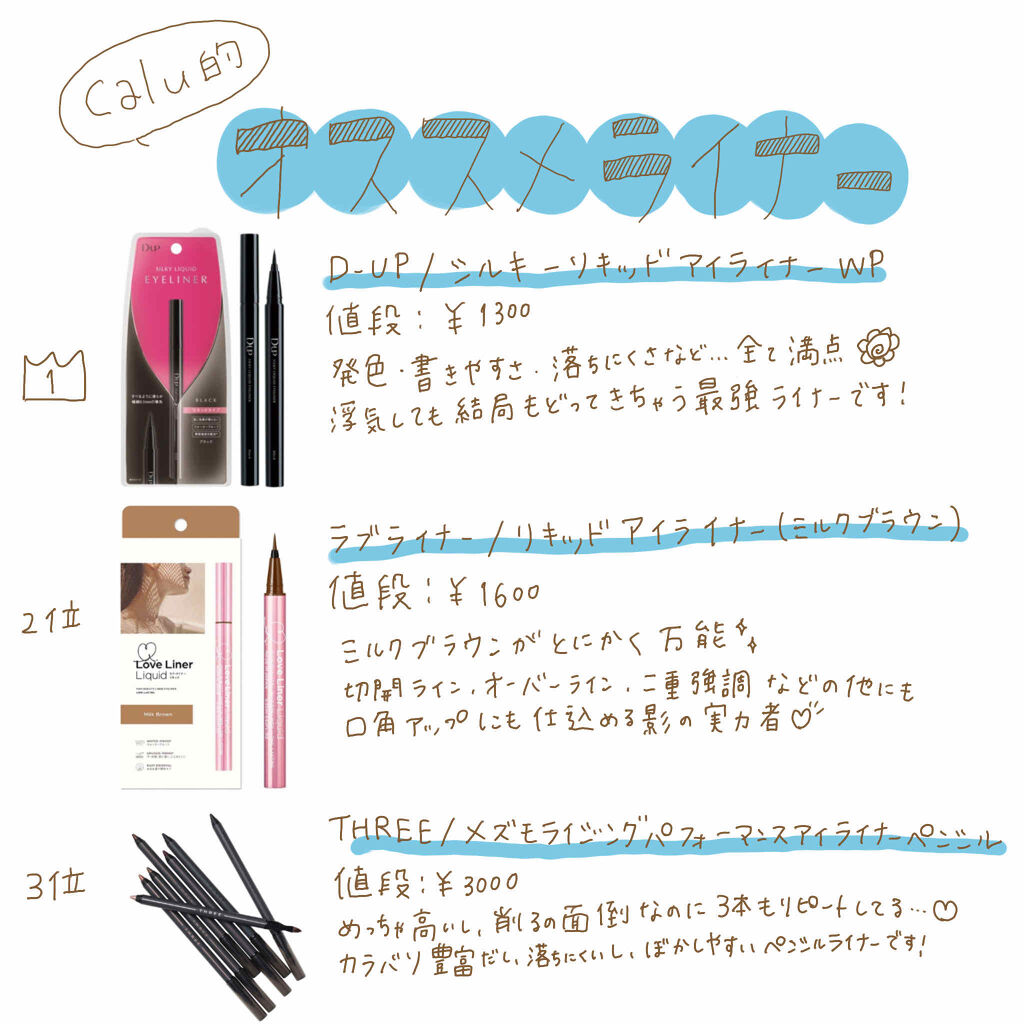 Calu的
オススメライナー
D-UP/シルキーリキッドアイライナーWP
値段:¥1300
発色・書きやすさ・落ちにくさなど…全て満点
浮気しても結局もどってきちゃう最強ライナーです!
1
D-UP
SILKY LIQUID
EYELINER
BLACK
ラブライナー/リキッドアイライナー(ミルクブラウン)
値段:¥1600
ミルクブラウンがとにかく万能
切開ライン、オーバーライン、二重強調などの他にも
口角アップにも仕込める影の実力者♡
2位
Love Liner
Liquid
Milk Brown
Love Liner Liquid
THREE/メズモライジングパフォーマンスアイライナーペンシル
値段:¥3000
めっちゃ高いし、削るの面倒なのに3本もリピートしてる…♡
カラバリ豊富だし、落ちにくいし、ぼかしやすいペンシルライナーです!
3位
THREE